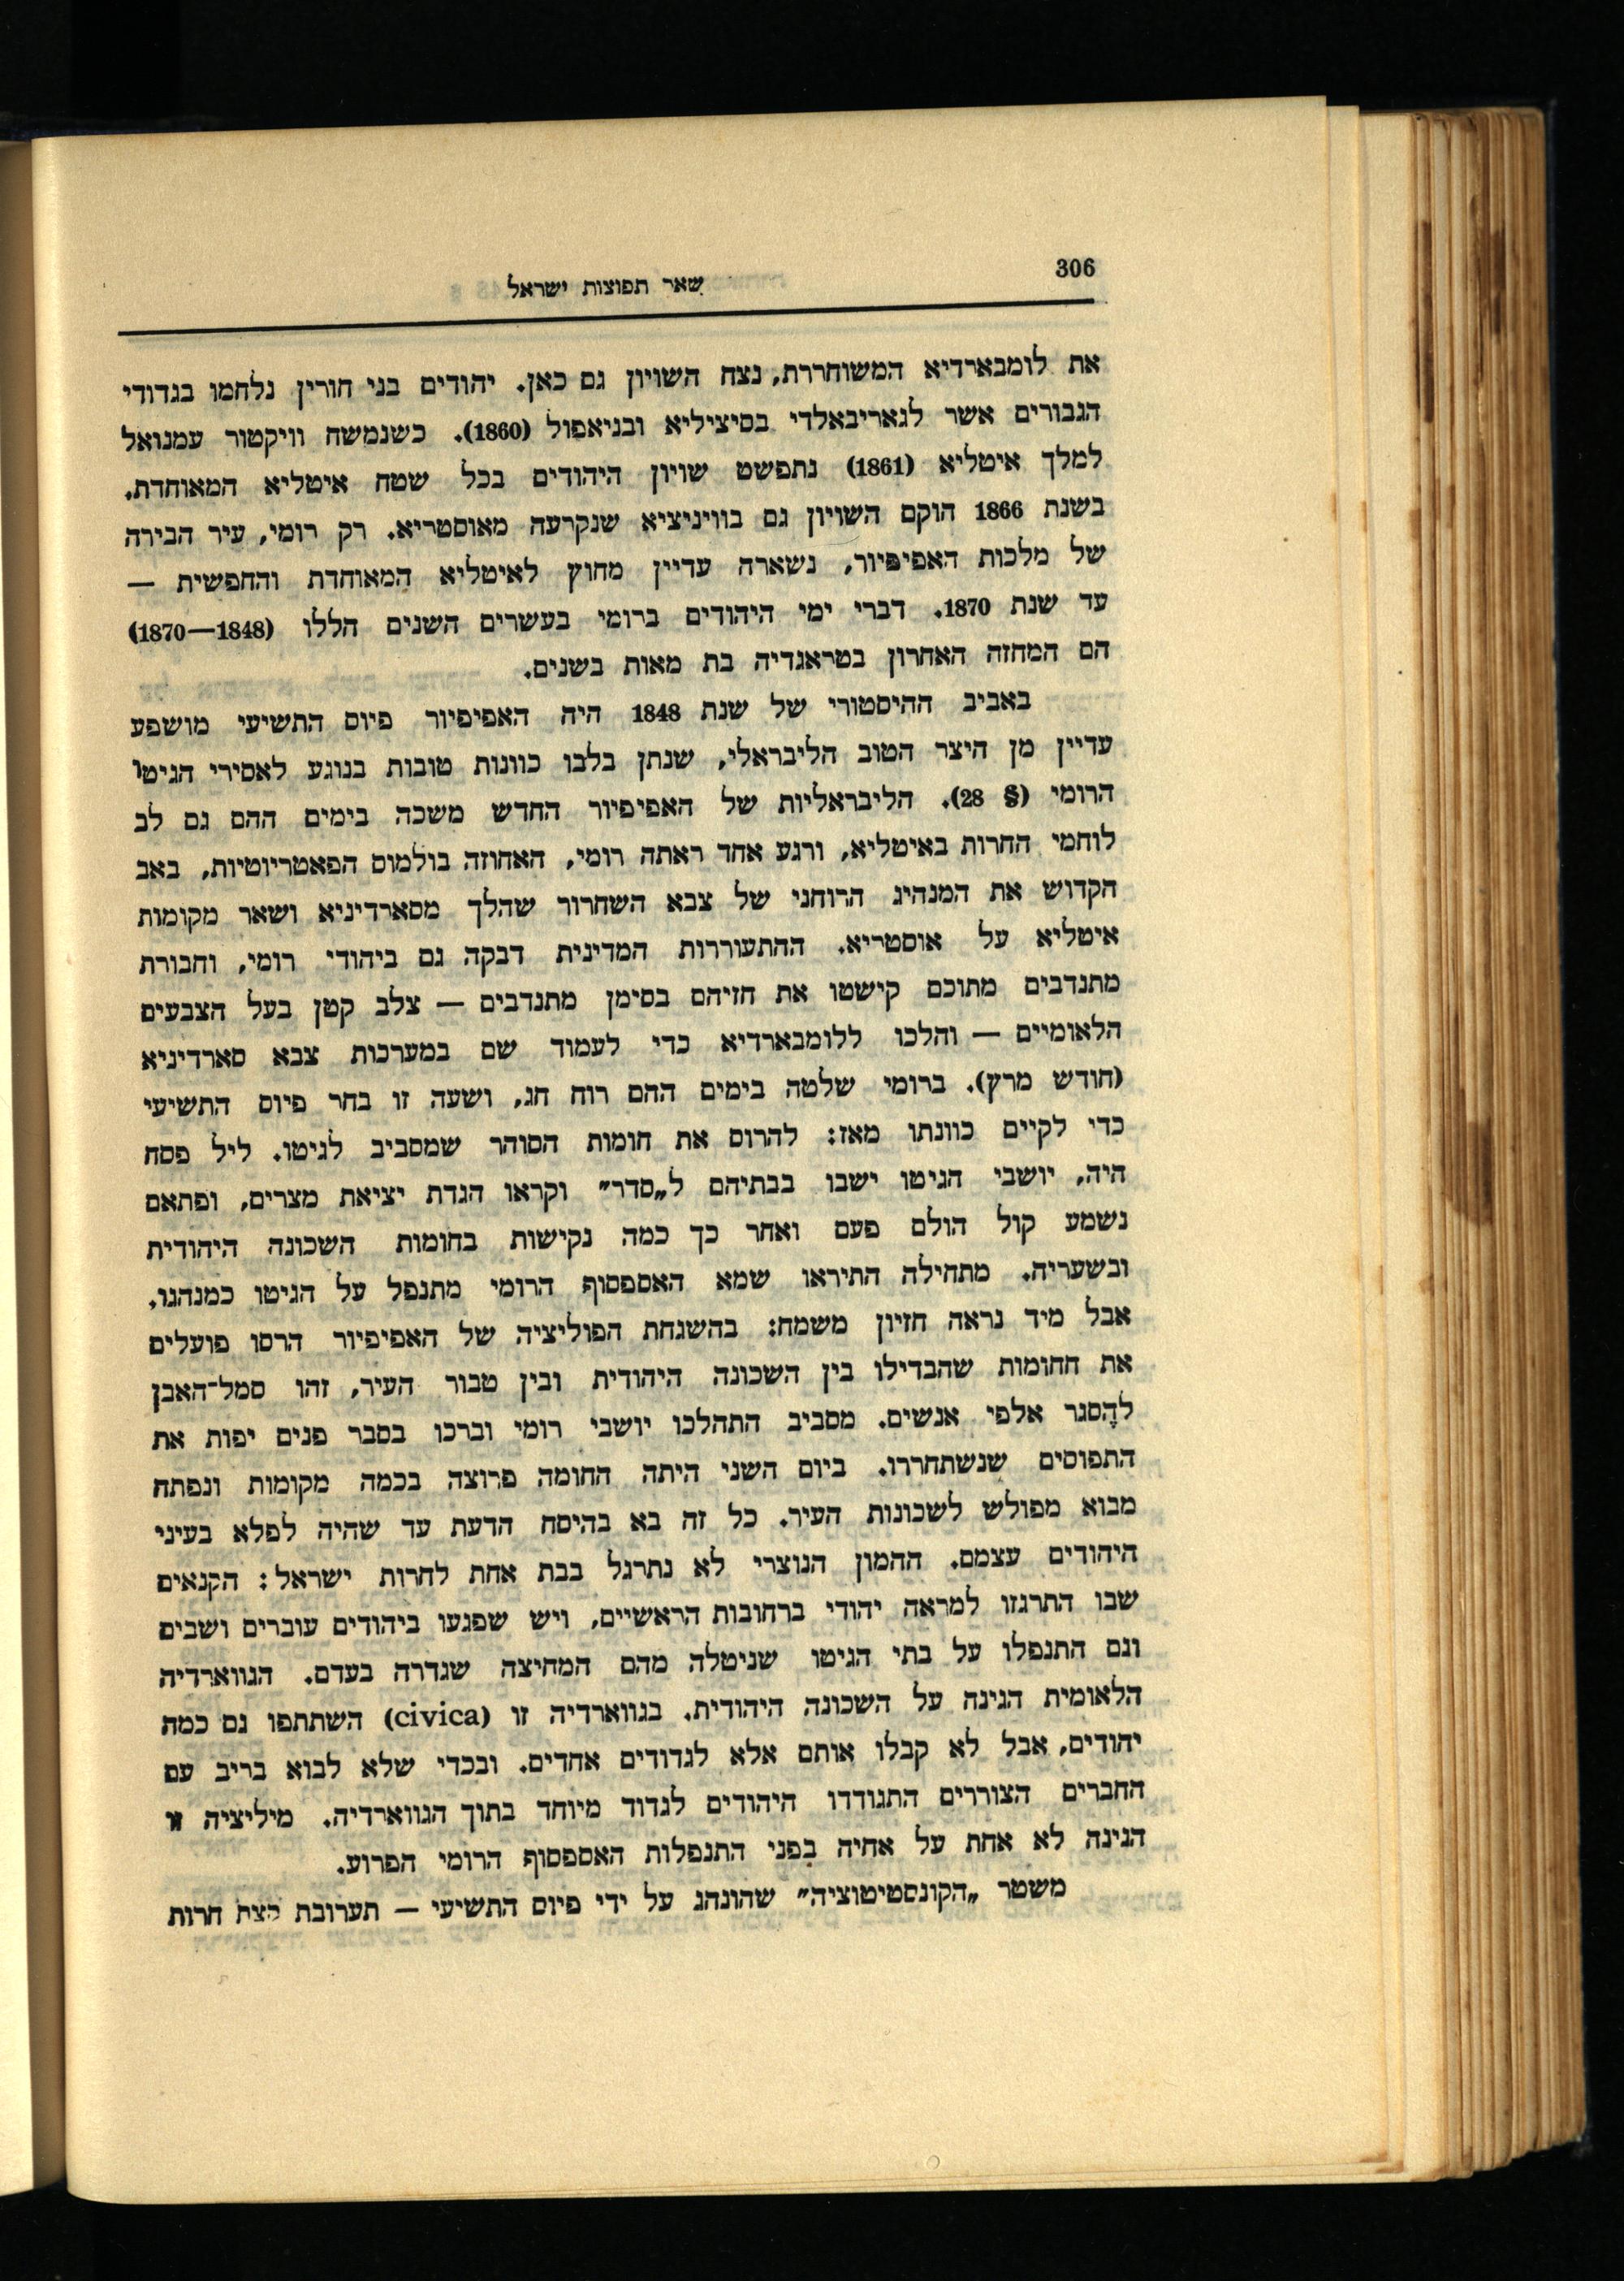 306
שאר תפוצות ישראל
את לומבארדיא המשוחררת, נצח השויון גם כאן. יהודים בני חורין נלחמו בגדודי
הגבורים אשר לגאריבאלדי בסיציליא ובניאפול (1860). כשנמשח וויקטור עמנואל
למלך איטליא (1861) נתפשט שויון היהודים בכל שטח איטליא המאוחדת.
בשנת 1866 הוקם השויון גם בוויניציא שנקרעה מאוסטריא. רק רומי, עיר הבירה
של מלכות האפיפיור, נשארה עדיין מחוץ לאיטליא המאוחדת והחפשית —
עד שנת 1870. דברי ימי היהודים ברומי בעשרים השנים הללו (1848—1870)
הם המחזה האחרון בטראגדיה בת מאות בשנים.
באביב ההיסטורי של שנת 1848 היה האפיפיור פיוס התשיעי מושפע
עדיין מן היצר הטוב הליבראלי, שנתן בלבו כוונות טובות בנוגע לאסירי הגיטו
הרומי (§ 28). הליבראליות של האפיפיור החדש משכה בימים ההם גם לב
לוחמי החרות באיטליא, ורגע אחד ראתה רומי, האחוזה בולמוס הפאטריוטיות, באב
הקדוש את המנהיג הרוחני של צבא השחרור שהלך מסארדיניא ושאר מקומות
איטליא על אוסטריא. ההתעוררות המדינית דבקה גם ביהודי רומי, וחבורת
מתנדבים מתוכם קישטו את חזיהם בסימן מתנדבים — צלב קטן בעל הצבעים
הלאומיים — והלכו ללומבארדיא כדי לעמוד שם במערכות צבא סארדיניא
(חודש מרץ). ברומי שלטה בימים ההם רוח חג, ושעה זו בחר פיוס התשיעי
כדי לקיים כוונתו מאז: להרוס את חומות הסוהר שמסביב לגיטו. ליל פסח
היה, יושבי הגיטו ישבו בבתיהם ל„סדר” וקראו הגדת יציאת מצרים, ופתאם
נשמע קול הולם פעם ואחר כך כמה נקישות בחומות השכונה היהודית
ובשעריה. מתחילה התיראו שמא האספסוף הרומי מתנפל על הגיטו כמנהגו,
אבל מיד נראה חזיון משמח: בהשגחת הפוליציה של האפיפיור הרסו פועלים
את החומות שהבדילו בין השכונה היהודית ובין טבור העיר, זהו סמל־האבן
להֶסגר אלפי אנשים. מסביב התהלכו יושבי רומי וברכו בסבר פנים יפות את
התפוסים שנשתחררו. ביום השני היתה החומה פרוצה בכמה מקומות ונפתח
מבוא מפולש לשכונות העיר. כל זה בא בהיסח הדעת עד שהיה לפלא בעיני
היהודים עצמם. ההמון הנוצרי לא נתרגל בבת אחת לחרות ישראל: הקנאים
שבו התרגזו למראה יהודי ברחובות הראשיים, ויש שפגעו ביהודים עוברים ושבים
וגם התנפלו על בתי הגיטו שניטלה מהם המחיצה שגדרה בעדם. הגווארדיה
הלאומית הגינה על השכונה היהודית. בגווארדיה זו (civica) השתתפו גם כמה
יהודים, אבל לא קבלו אותם אלא לגדודים אחדים. ובכדי שלא לבוא בריב עם
החברים הצוררים התגודדו היהודים לגדוד מיוחד בתוך הגווארדיה. מיליציה זו
הגינה לא אחת על אחיה בפני התנפלות האספסוף הרומי הפרוע.
משטר „הקונסטיטוציה” שהונהג על ידי פיוס התשיעי — תערובת קצת חרות